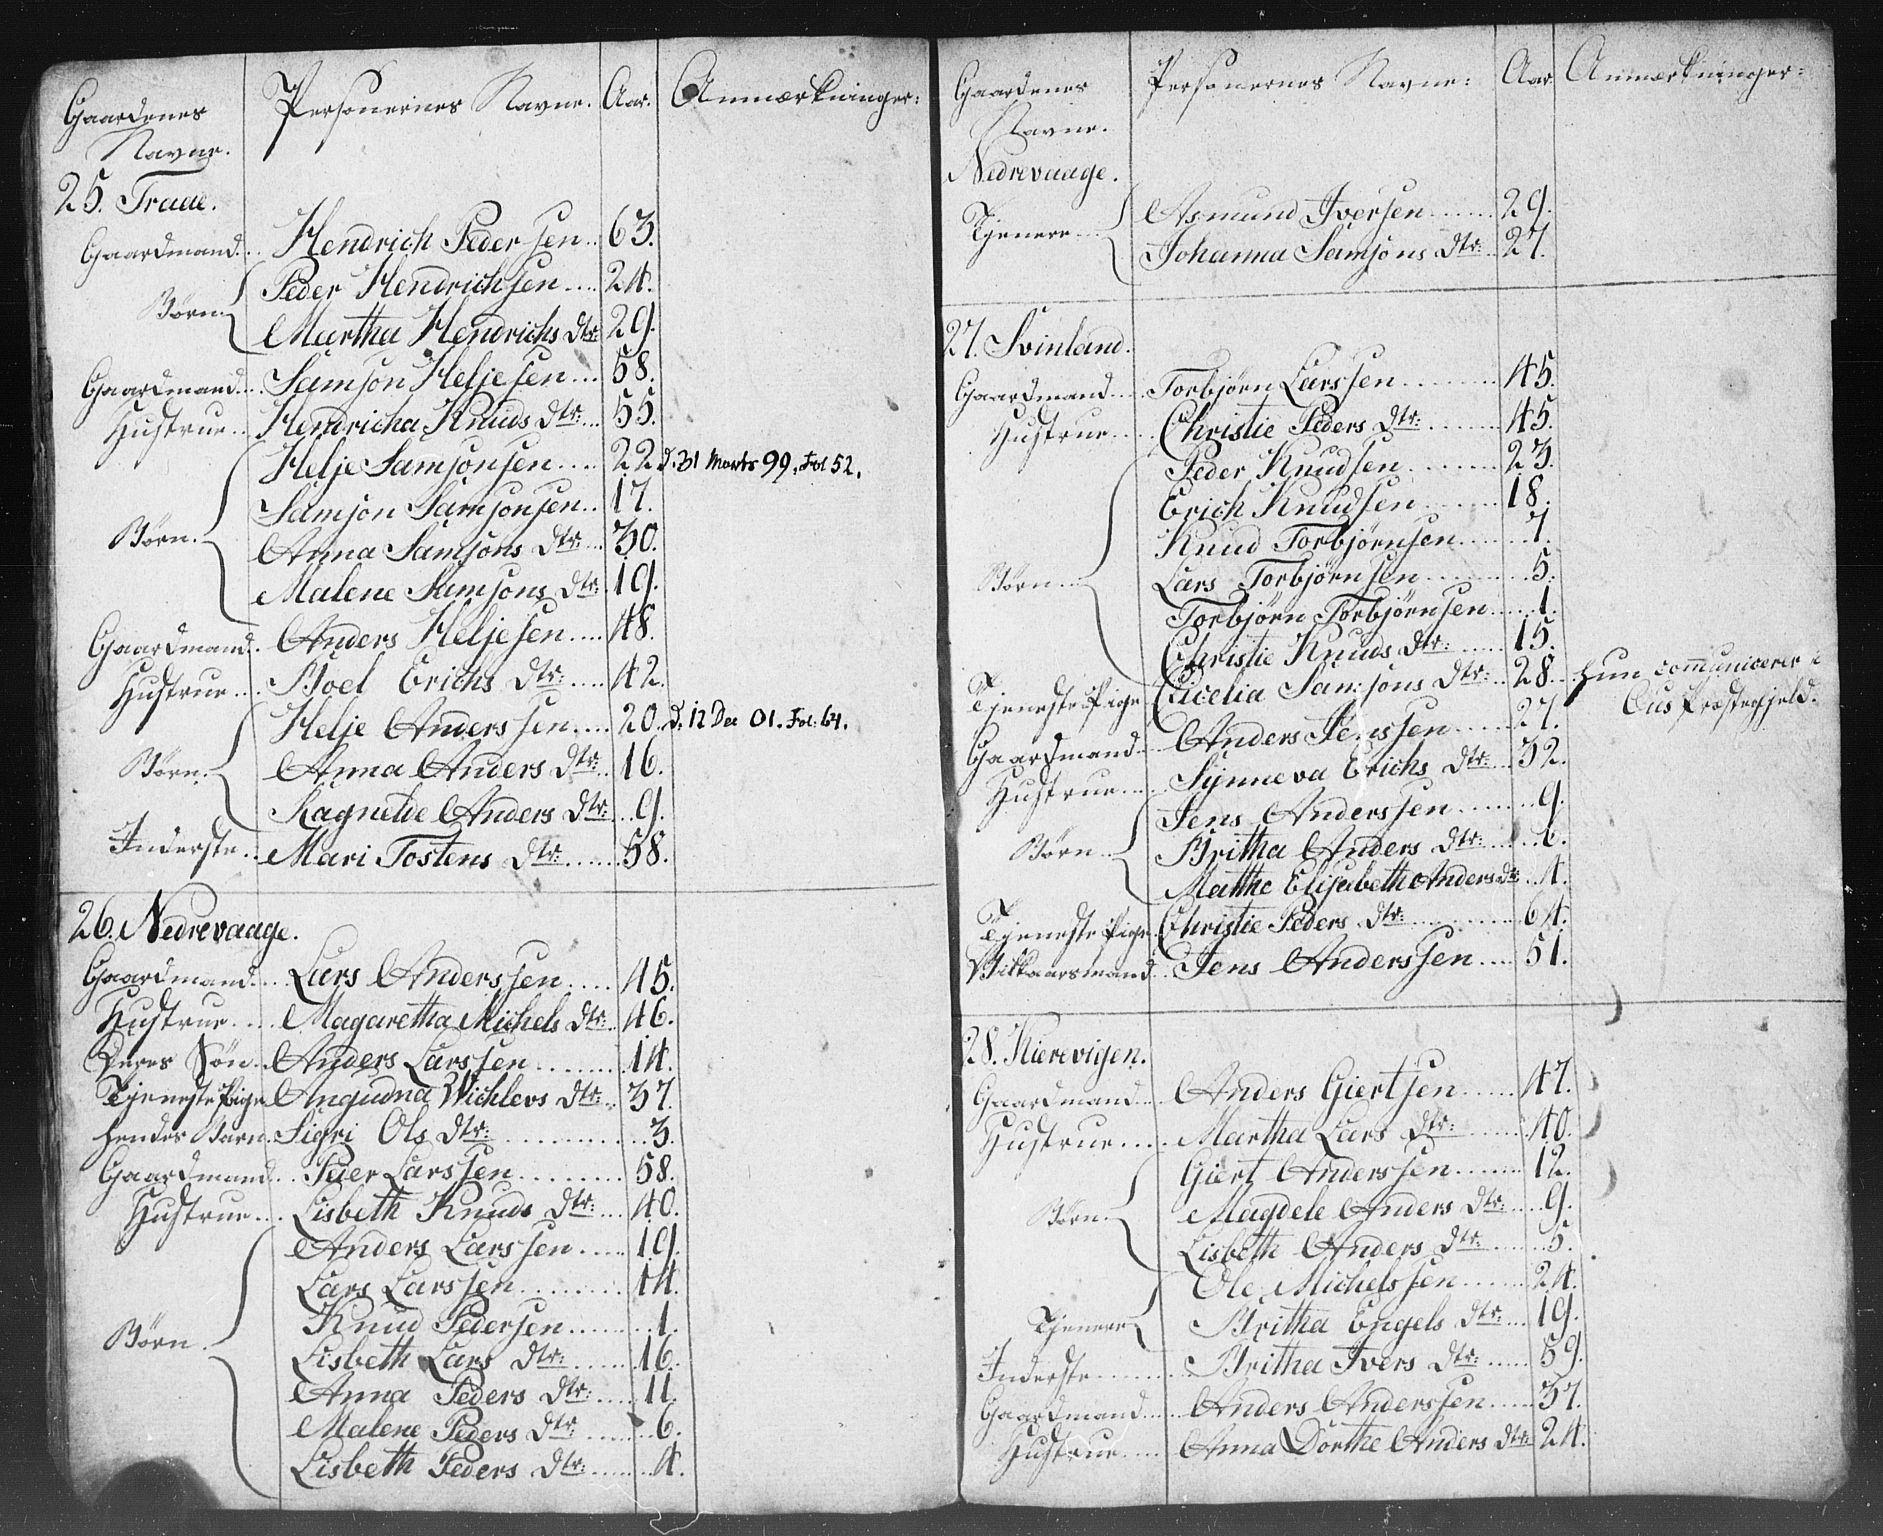 Gaardenes Navne. Personernes Navne. Aar. Anmærkninger:
25. Traae.
Gaardmand... Hendrich Pedersen.. 63.
Børn. Peder Hendrichsen.... 24.
Martha Hendrichs Dtr: 29.
Gaardmand.... Samson Heljesen... 58.
Hustrue... Hendricha Knuds Dtr:... 55.
Helje Samsonsen..... 22. d. 31 Marts 99. Fol 52.
Samson Samsonsen.. 17.
Børn. Anna Samsons Dtr:... 30.
Malene Samsons Dtr: 19.
Gaardmand. Anders Heljesen.... 48.
Hustrue.... Boel Erichs Dtr:..... 42.
Helje Anderssen.... 20. d. 12 Dec 01. Fol: 64.
Børn. Anna Anders Dtr:.. 16.
Ragnelde Anders Dtr:... 9.
Inderste... Mari Tostens Dtr:...... 58.
26. Nedrevaage.
Gaardmand..... Lars Anderssen..... 45.
Hustrue..... Magaretha Michels Dtr:.. 46.
Deres Søn.. Anders Larssen......... 14.
Tjeneste Pige Angudna Wichlevs Dtr:.. 37.
Hendes Barn. Sigri Ols Dtr:............... 3.
Gaardmand... Peer Larssen......... 58.
Hustrue.... Lisbeth Knuds Dtr:.... 40.
Anders Larssen..... 19.
Lars Larssen......... 14.
Knud Pedersen......... 1.
Børn. Lisbeth Lars Dtr:....... 16.
Anna Peders Dtr:..... 11.
Malene Peders Dtr........ 6.
Lisbeth Peders Dtr:........ 4.
Gaardenes Navne. Personernes Navne: Aar Anmærkninger:
Nedrevaage.
Tjenere... Asmund Iversen....... 29.
Johanna Samsons Dtr:.. 27.
27. Svinland.
Gaardmand..... Torbjørn Larssen......... 45.
Hustrue..... Christie Peders Dtr:........ 45.
Peder Knudsen......... 23.
Erich Knudsen......... 18.
Knud Torbjørnsen......... 7.
Børn... Lars Torbjørnsen.......... 5.
Torbjørn Torbjørnsen...... 1.
Christie Knuds Dtr:...... 15.
Tjeneste Pige Cicelia Samsons Dtr:... 28. hun communicerer i
Ous Præstegjeld.
Gaardmand.... Anders Jenssen......... 27.
Hustrue...... Synneva Erichs Dtr:.... 32.
Jens Anderssen......... 9.
Børn... Britha Anders Dtr:....... 6.
Matthe Elisabeth Anders Dtr... 4.
Tjeneste Pige. Christie Peders Dtr:............. 64.
Vilkaarsmand.. Jens Anderssen.... 51.
28. Kierevigen.
Gaardmand.... Anders Giertsen...... 47.
Hustrue...... Martha Lars Dtr:........ 40.
Giert Anderssen........ 12.
Børn. Magdele Anders Dtr:.... 9.
Lisbeth Anders Dtr:........ 5.
Ole Michelssen....... 24.
Tjenere Britha Engels Dtr:.... 19.
Inderste......... Britha Ivers Dtr:...... 59.
Gaardmand...... Anders Anderssen..... 37.
Hustrue..... Anna Dorthe Anders Dtr: 24.